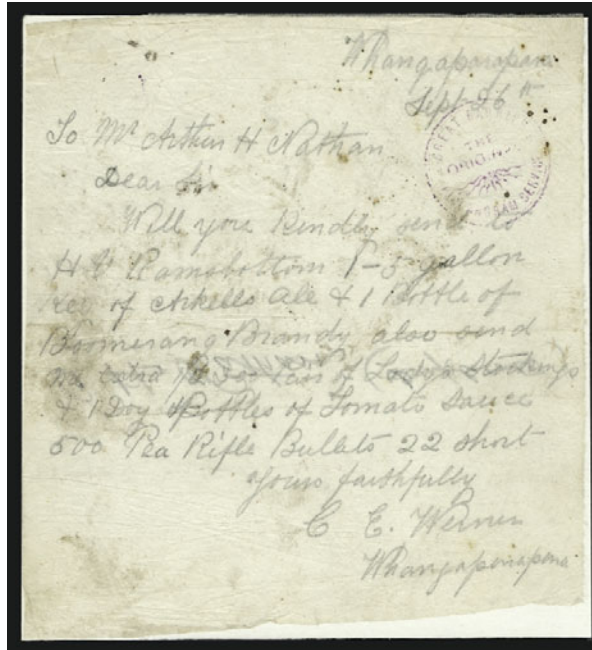 Whangaparapara
Sept 26th
GREAT BARRIER
THE
ORIGINAL
PIGEONGRAM SERVICE
To Mr Arthur H Nathan
Dear Sir
Will you kindly send to
H V Ramsbottom 1-3 gallon
Keg of Arkells Ale & 1 Bottle of
Boomerang Brandy also send
me extra Pair of Lady's Stockings
& 1 Doz Bottles of Tomato Sauce
500 Pea Rifle Bullets 22 short
Yours faithfully
C E. Werner
Whangaparapara